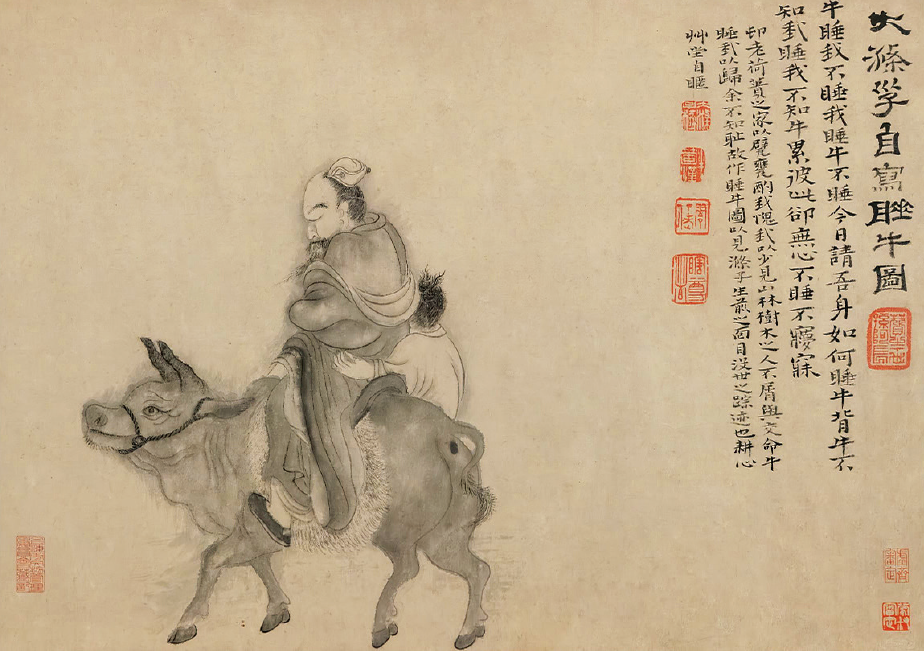 大滌子自寫睡牛圖
牛睡我不睡我睡牛不睡今日請吾身如何睡牛背牛不
知我睡我不知牛累彼此卻無心不睡不寐
邨老荷蕢之家以甓甕酌我愧我以少見山林樹木之人不屑與交命牛
睡我以歸余不知耻故作睡牛圖以見滌子生前之面目沒世之踪迹也耕心
艸堂自